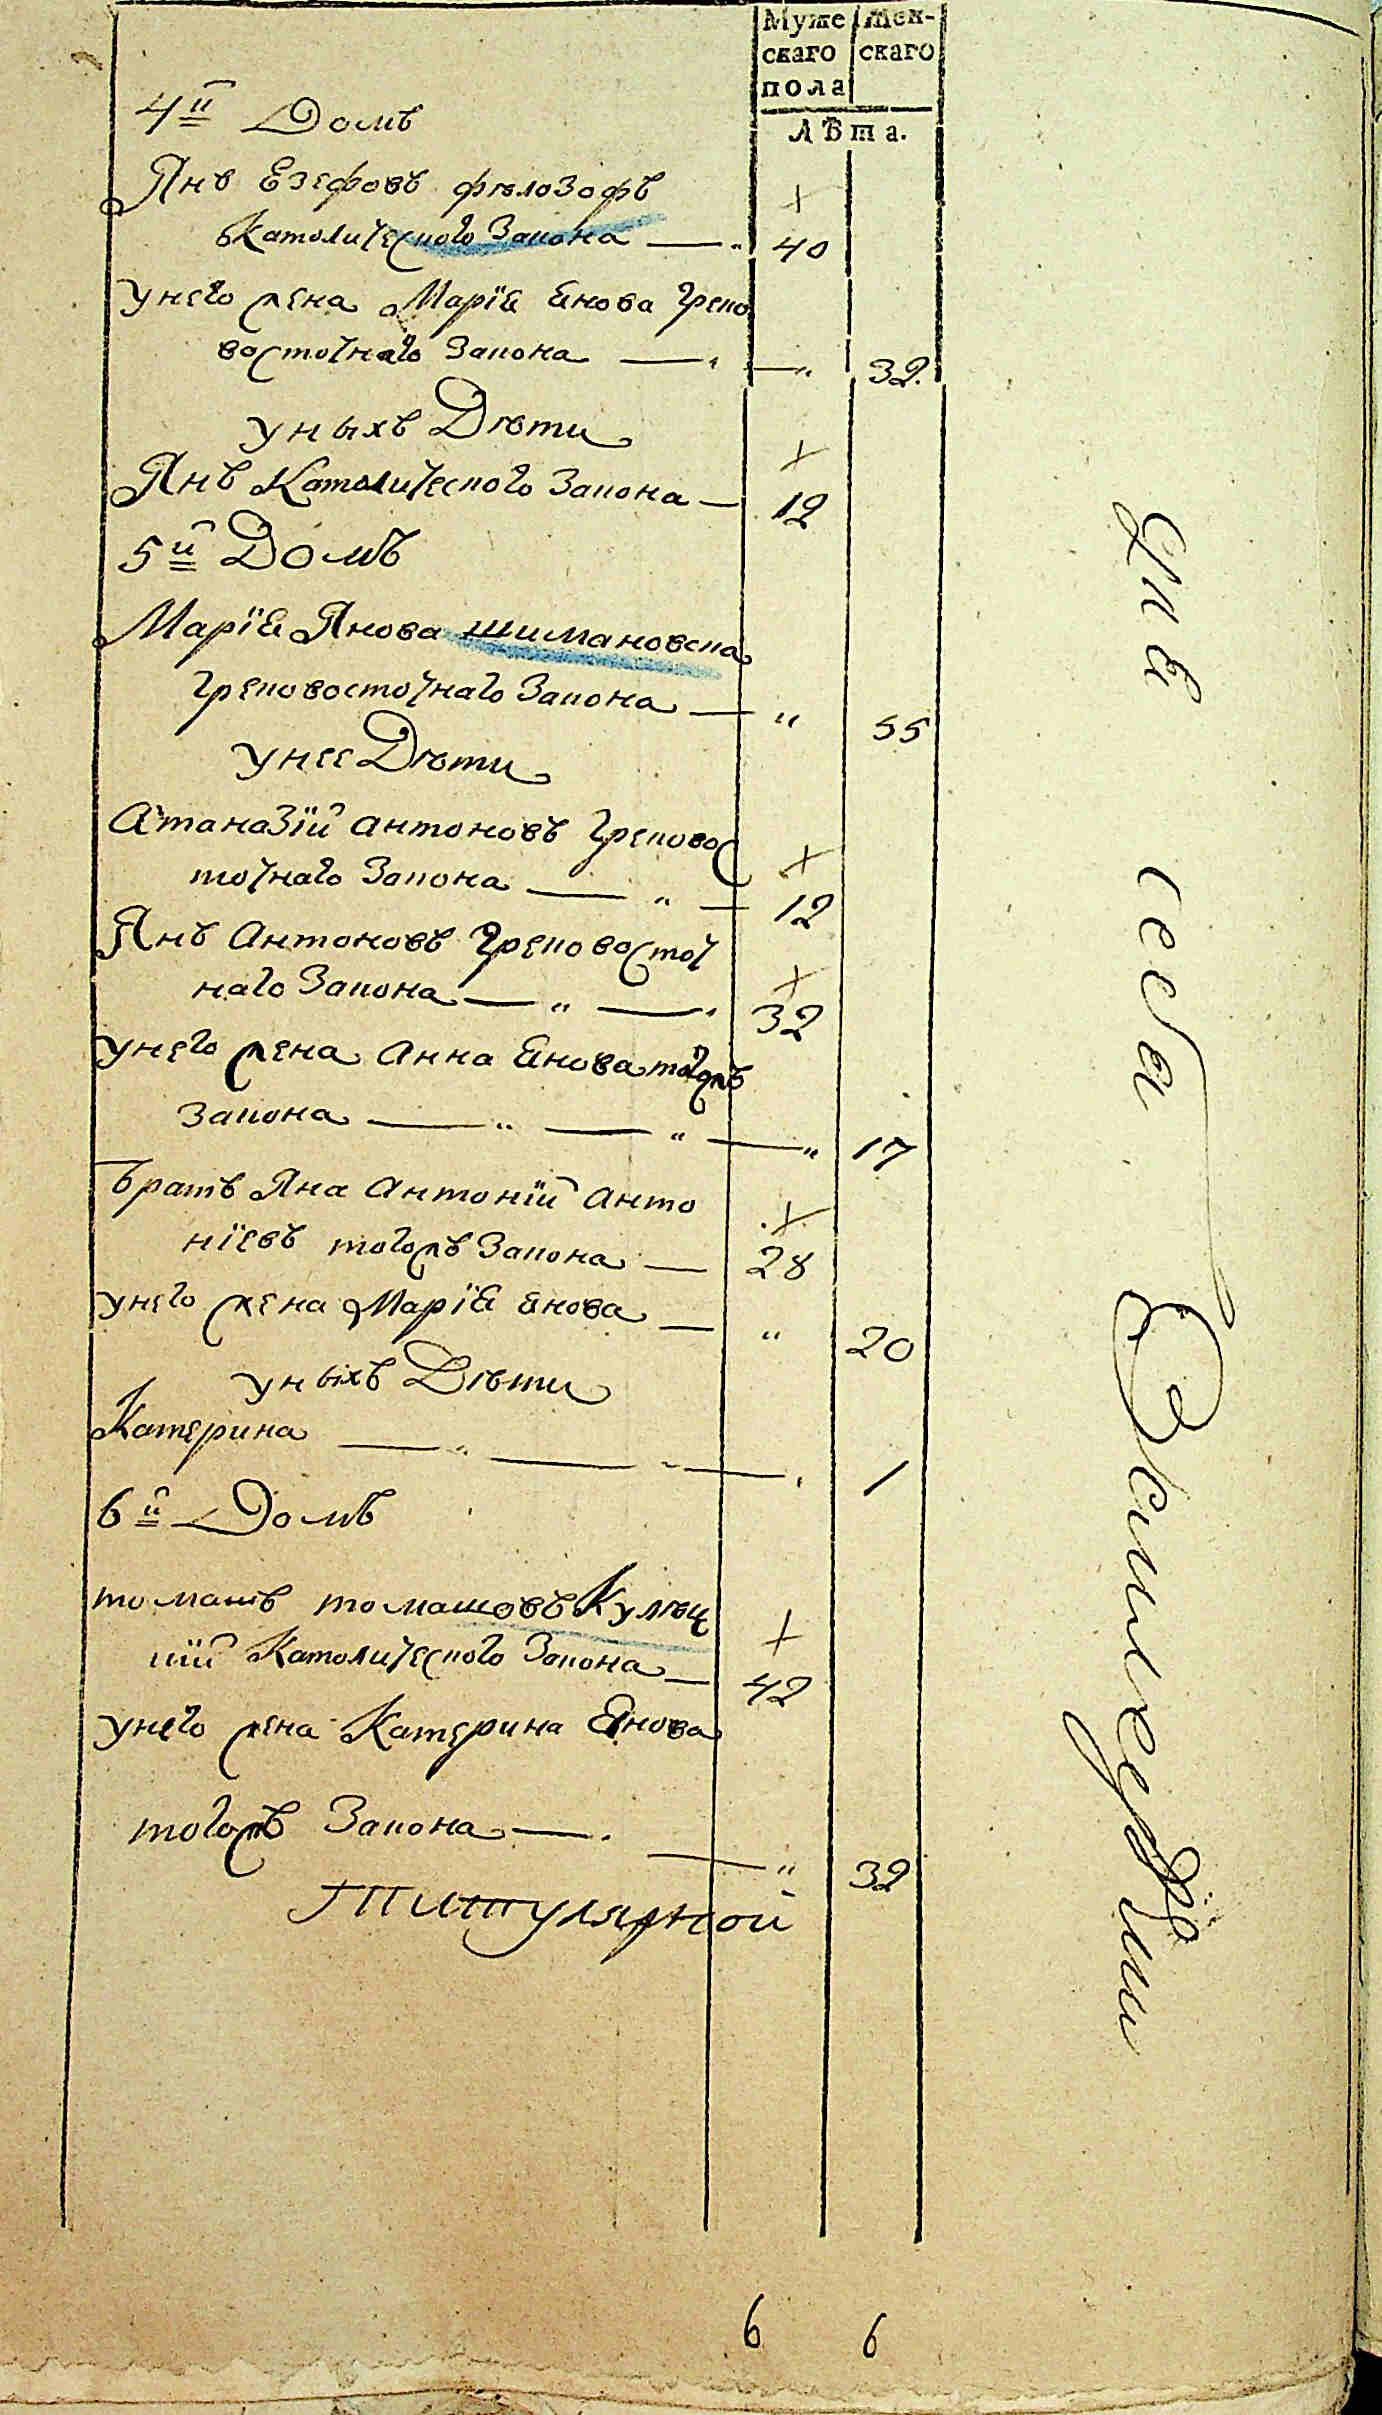 Муже Жен-
скаго скаго
пола
Лѣта.
4й Домъ
Янъ Езефовъ филозофъ
Католического Закона — 40
унего жена Маріѣ Енова греко
восточнаго Закона — „ — „ 32
уныхъ Дѣти
Янъ Католического Закона — 12
5й Домъ
Маріѣ Янова шимановска
грековосточнаго Закона — „ 55
унее Дѣти
Атаназій антоновъ грековос
точнаго Закона — „ — 12
Янъ Антоновъ грековосточ
наго Закона — „ — „ 32
унего жена Анна Енова тогожъ
Закона — „ — „ — „ 17
братъ Яна Антоній Анто
ніевъ тогожъ Закона — 28
унего жена Маріѣ Енова — „ 20
уныхъ Дѣти
Катерина — „ — „ — „ 1
6й Домъ
томашъ томашовъ
кій Католического Закона — 42
унего жена Катерина Енова
тогожъ Закона — „ — „ 32
Титулярной
6 6
себа